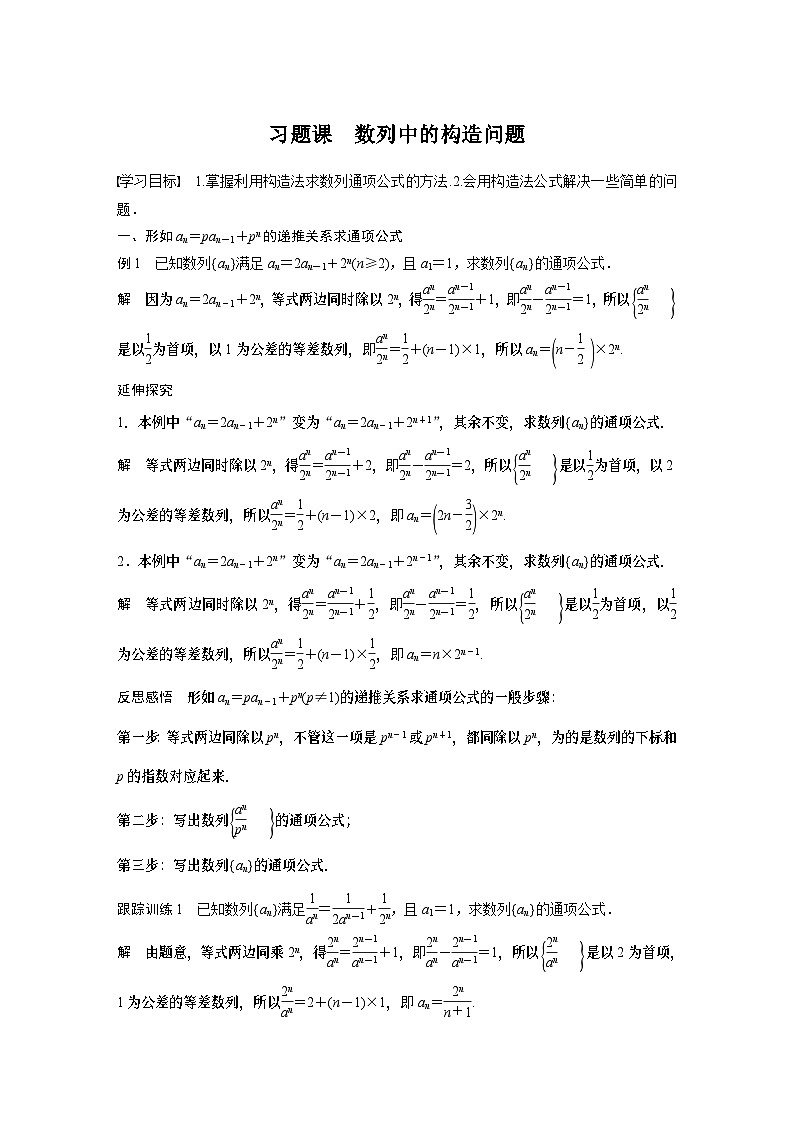 习题课　数列中的构造问题
学习目标　1.掌握利用构造法求数列通项公式的方法.2.会用构造法公式解决一些简单的问
题.
一、形如 aₙ=paₙ₋₁+pⁿ 的递推关系求通项公式
例 1　已知数列{aₙ}满足 aₙ=2aₙ₋₁+2ⁿ(n≥2)，且 a₁=1，求数列{aₙ}的通项公式.
解　因为 aₙ=2aₙ₋₁+2ⁿ，等式两边同时除以 2ⁿ，得aₙ/2ⁿ=aₙ₋₁/2ⁿ⁻¹+1，即aₙ/2ⁿ-aₙ₋₁/2ⁿ⁻¹=1，所以{aₙ/2ⁿ}
是以1/2为首项，以 1 为公差的等差数列，即aₙ/2ⁿ=1/2+(n-1)×1，所以 aₙ=(n-1/2)×2ⁿ.
延伸探究
1．本例中“aₙ=2aₙ₋₁+2ⁿ”变为“aₙ=2aₙ₋₁+2ⁿ⁺¹”，其余不变，求数列{aₙ}的通项公式.
解　等式两边同时除以 2ⁿ，得aₙ/2ⁿ=aₙ₋₁/2ⁿ⁻¹+2，即aₙ/2ⁿ-aₙ₋₁/2ⁿ⁻¹=2，所以{aₙ/2ⁿ}是以1/2为首项，以 2
为公差的等差数列，所以aₙ/2ⁿ=1/2+(n-1)×2，即 aₙ=(2n-3/2)×2ⁿ.
2．本例中“aₙ=2aₙ₋₁+2ⁿ”变为“aₙ=2aₙ₋₁+2ⁿ⁻¹”，其余不变，求数列{aₙ}的通项公式.
解　等式两边同时除以 2ⁿ，得aₙ/2ⁿ=aₙ₋₁/2ⁿ⁻¹+1/2，即aₙ/2ⁿ-aₙ₋₁/2ⁿ⁻¹=1/2，所以{aₙ/2ⁿ}是以1/2为首项，以1/2
为公差的等差数列，所以aₙ/2ⁿ=1/2+(n-1)×1/2，即 aₙ=n×2ⁿ⁻¹.
反思感悟　形如 aₙ=paₙ₋₁+pⁿ(p≠1)的递推关系求通项公式的一般步骤：
第一步：等式两边同除以 pⁿ，不管这一项是 pⁿ⁻¹ 或 pⁿ⁺¹，都同除以 pⁿ，为的是数列的下标和
p 的指数对应起来.
第二步：写出数列{aₙ/pⁿ}的通项公式；
第三步：写出数列{aₙ}的通项公式.
跟踪训练 1　已知数列{aₙ}满足1/aₙ=1/2aₙ₋₁+1/2ⁿ，且 a₁=1，求数列{aₙ}的通项公式.
解　由题意，等式两边同乘 2ⁿ，得2ⁿ/aₙ=2ⁿ⁻¹/aₙ₋₁+1，即2ⁿ/aₙ-2ⁿ⁻¹/aₙ₋₁=1，所以{2ⁿ/aₙ}是以 2 为首项，
1 为公差的等差数列，所以2ⁿ/aₙ=2+(n-1)×1，即 aₙ=2ⁿ/(n+1).